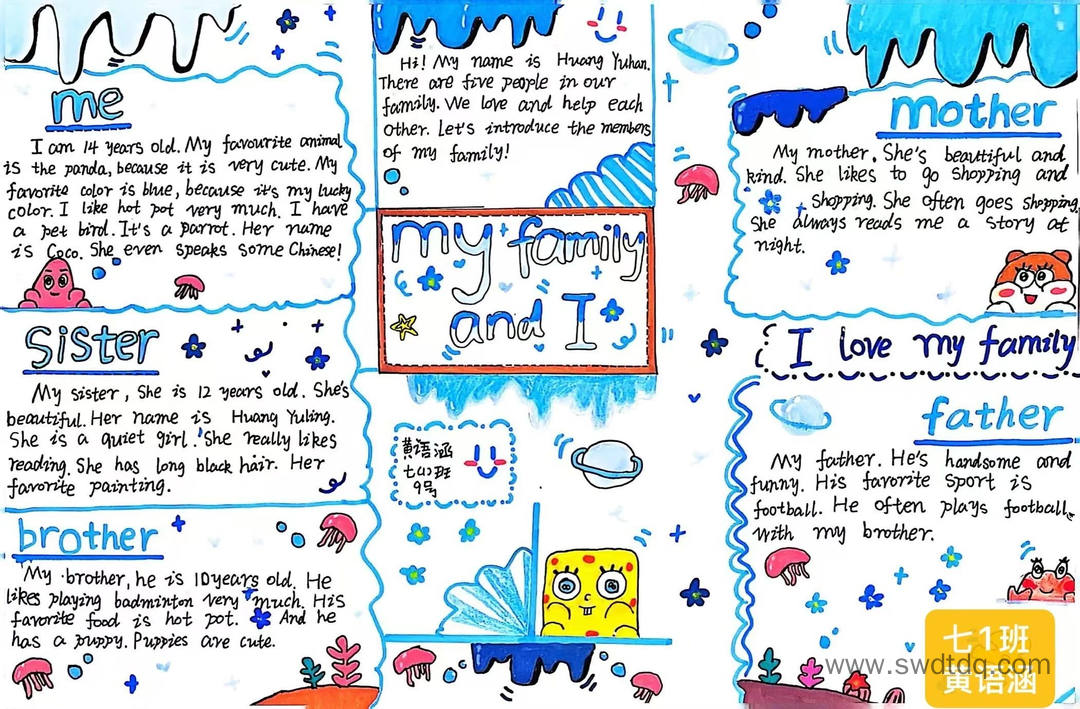 me
I am 14 years old. My favourite animal
is the panda, because it is very cute. My
favorite color is blue, because it's my lucky
color. I like hot pot very much. I have
a pet bird. It's a parrot. Her name
is Coco. She even speaks some Chinese!
sister
My sister, She is 12 years old. She's
beautiful. Her name is Huang Yuling.
She is a quiet girl. She really likes
reading. She has long black hair. Her
favorite painting.
brother
My brother, he is 10 years old. He
likes playing badminton very much. His
favorite food is hot pot. And he
has a puppy. Puppies are cute.
Hi! My name is Huang Yuhan.
There are five people in our
family. We love and help each
other. Let's introduce the members
of my family!
my family
and I
黄语涵
七(1)班
9号
mother
My mother. She's beautiful and
kind. She likes to go shopping and
shopping. She often goes shopping.
She always reads me a story at
night.
I love my family
father
My father. He's handsome and
funny. His favorite sport is
football. He often plays football
with my brother.
七1班
黄语涵
www.swdtdq.com